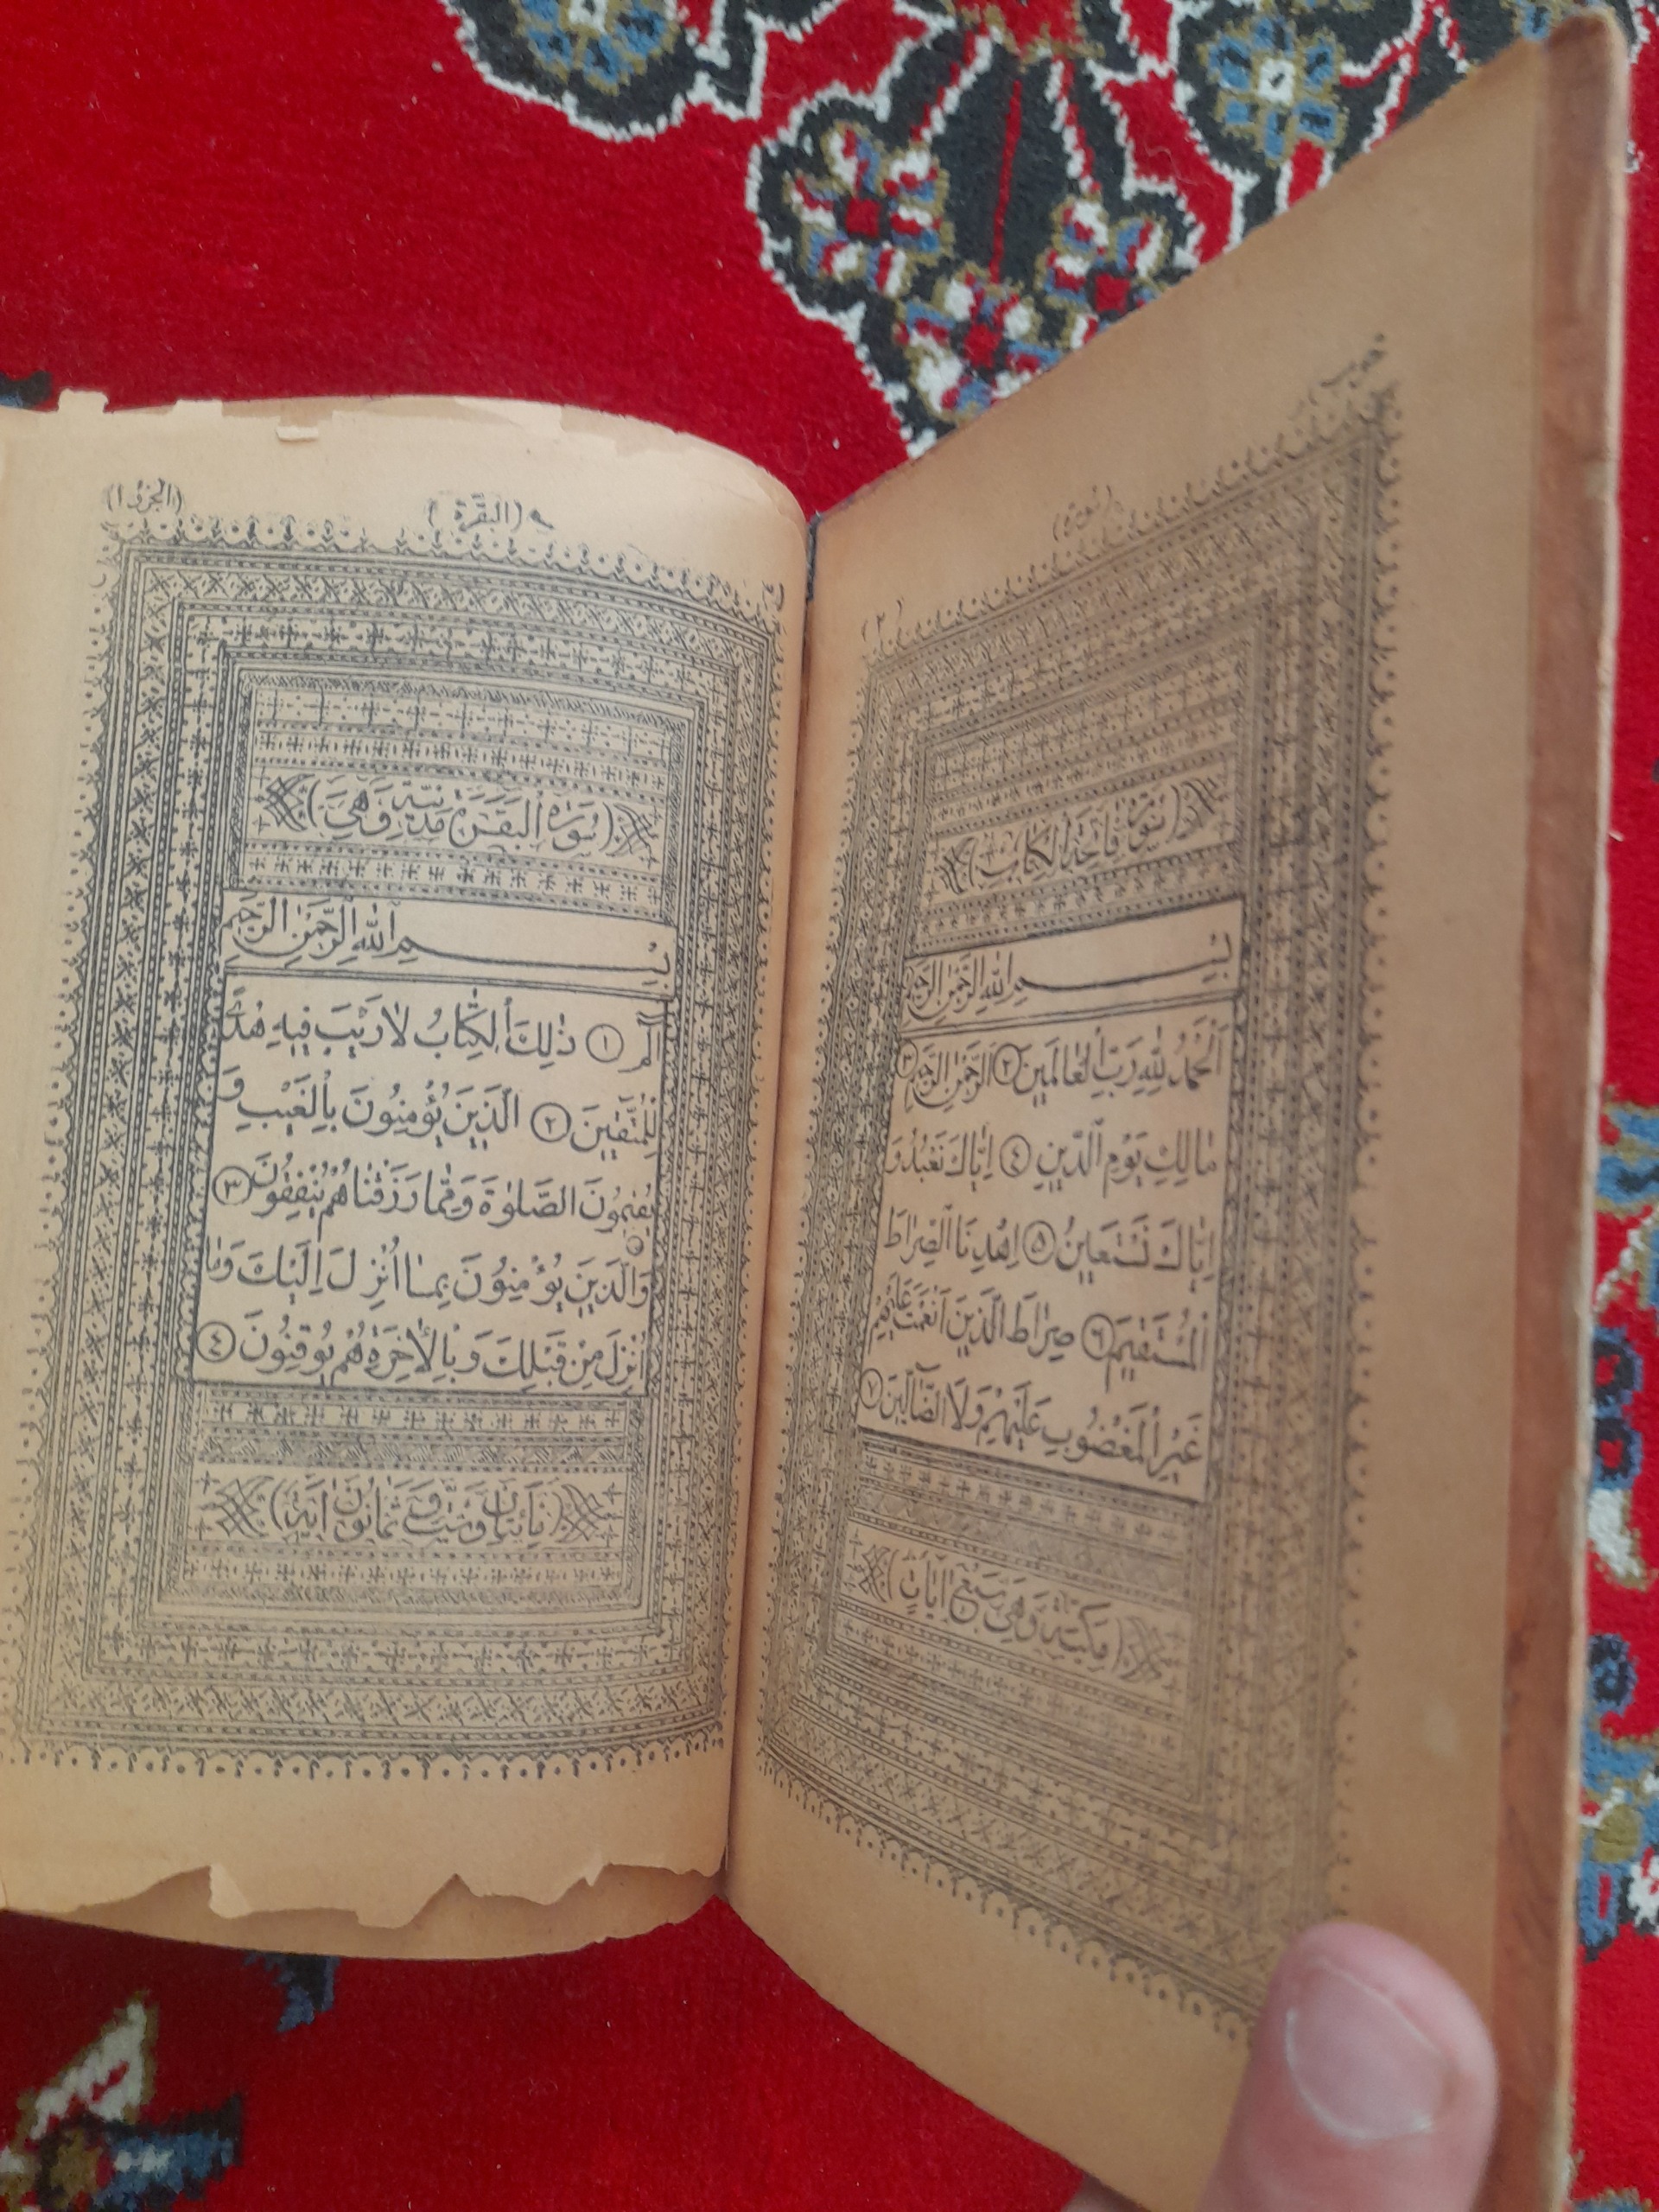 (سورة
سورة فاتحة الكتاب
بِسْمِ اللهِ الرَّحْمٰنِ الرَّحِيمِ
اَلْحَمْدُ لِلّٰهِ رَبِّ الْعَالَمِينَ ٢ اَلرَّحْمٰنِ الرَّحِيمِ ٣
مَالِكِ يَوْمِ الدِّينِ ٤ اِيَّاكَ نَعْبُدُ وَ
اِيَّاكَ نَسْتَعِينُ ٥ اِهْدِنَا الصِّرَاطَ
الْمُسْتَقِيمَ ٦ صِرَاطَ الَّذِينَ اَنْعَمْتَ عَلَيْهِمْ
غَيْرِ الْمَغْضُوبِ عَلَيْهِمْ وَلَا الضَّالِّينَ ٧
(مَكِّيَّةٌ وَهِيَ سَبْعُ آيَاتٍ)
(البَقَرَة) (الجزء ١)
(سُورَةُ الْبَقَرَةِ مَدَنِيَّةٌ وَهِيَ)
بِسْمِ اللهِ الرَّحْمٰنِ الرَّحِيمِ
الٓمٓ ١ ذٰلِكَ الْكِتَابُ لَا رَيْبَ فِيهِ هُدًى
لِلْمُتَّقِينَ ٢ الَّذِينَ يُؤْمِنُونَ بِالْغَيْبِ وَ
يُقِيمُونَ الصَّلٰوةَ وَمِمَّا رَزَقْنَاهُمْ يُنْفِقُونَ ٣
وَالَّذِينَ يُؤْمِنُونَ بِمَا اُنْزِلَ اِلَيْكَ وَمَا
اُنْزِلَ مِنْ قَبْلِكَ وَبِالْاٰخِرَةِ هُمْ يُوقِنُونَ ٤
(مَائَتَانِ وَسِتٌّ وَثَمَانُونَ اٰيَةً)